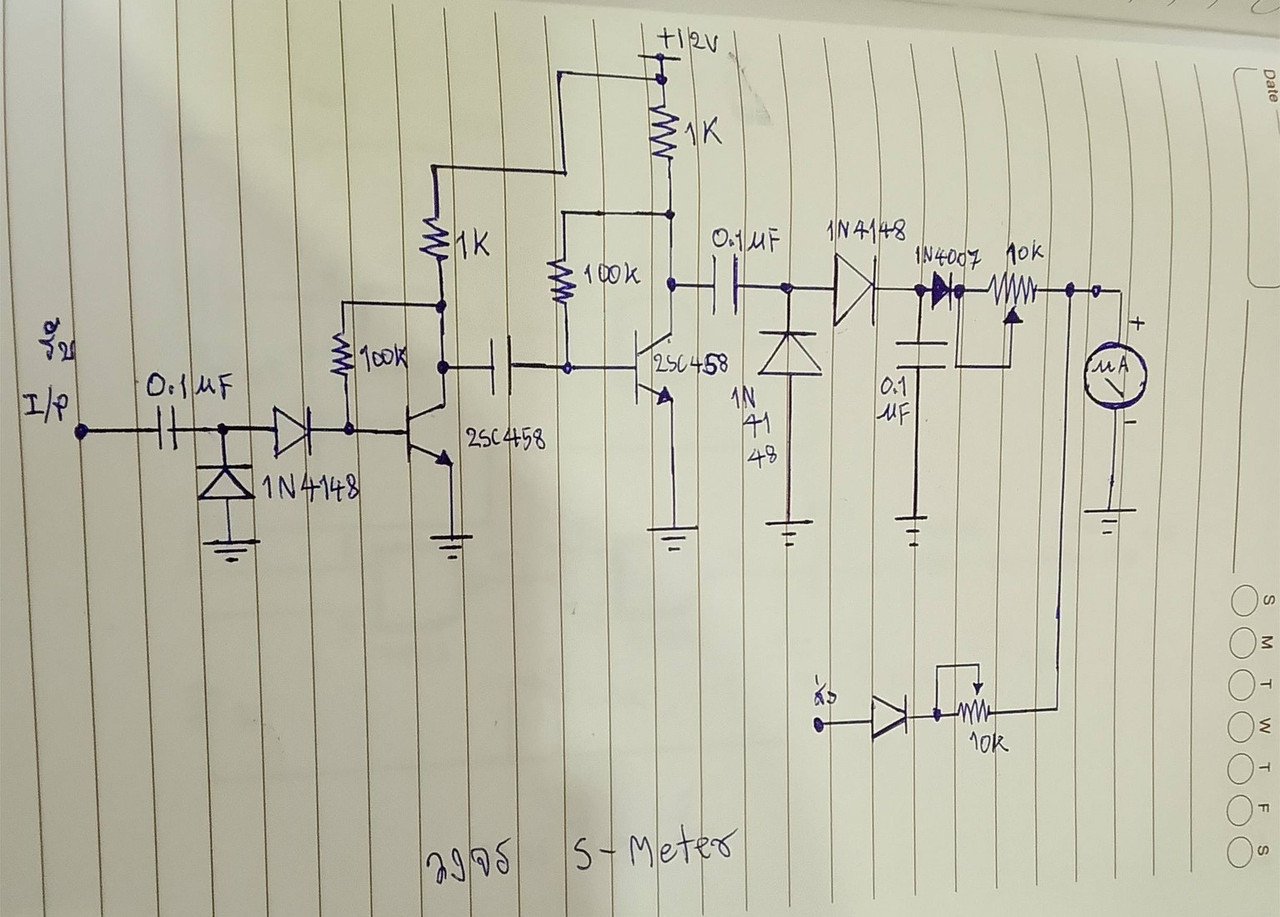 Date
+12V
1K
1K
100k
0.1μF
1N4148
1N4007
10k
รับ
I/P
0.1μF
100K
2SC458
1N
41
48
0.1
μF
μA
+
-
1N4148
2SC458
ส่ง
10k
วงจร S-Meter
S M T W T F S